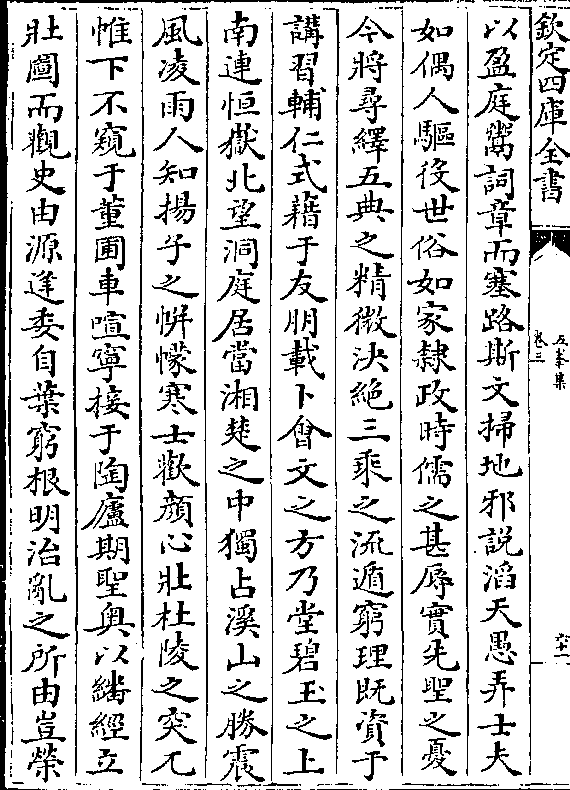 欽定四庫全書
五峯集
卷三
以盈庭鬻詞章而塞路斯文掃地邪說滔天愚弄士夫
如偶人驅役世俗如家隸政時儒之甚辱實先聖之憂
今將尋繹五典之精微決絶三乘之流遁窮理既資于
講習輔仁式藉于友朋載卜會文之方乃堂碧玉之上
南連恒嶽北望洞庭居當湘楚之中獨占溪山之勝震
風凌雨人知揚子之帡幪寒士歡顔心壯杜陵之突兀
帷下不窺于董圃車喧寧接于陶廬期聖奥以繙經立
壯圖而觀史由源逹委自葉窮根明治亂之所由豈榮